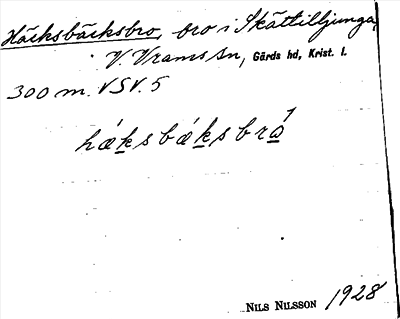 Häcksbäcksbro, bro i Skättilljunga,
V. Vrams sn, Gärds hd, Krist. l.
300 m. VSV. 5
hǽksbǽksbrώ̲
NILS NILSSON 1928